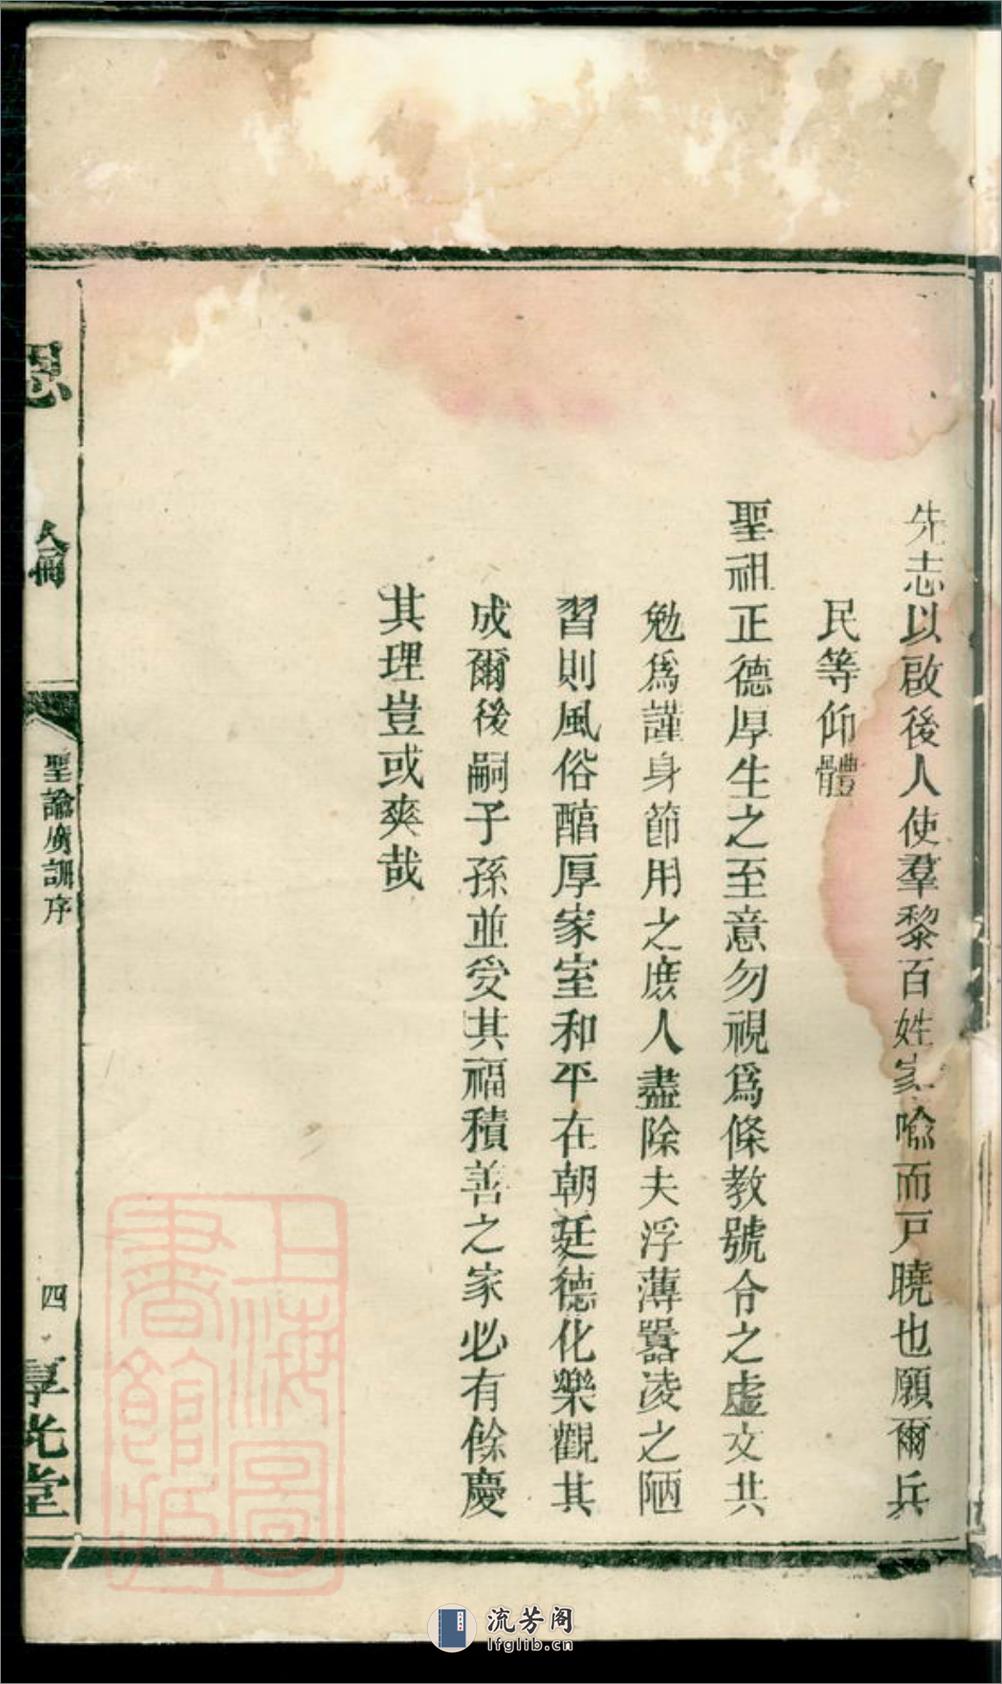 先志以啟後人使羣黎百姓家喻而戸曉也願爾兵
民等仰體
聖祖正德厚生之至意勿視爲條教號令之虛文共
勉爲謹身節用之庶人盡除夫浮薄囂凌之陋
習則風俗醕厚家室和平在朝廷德化樂觀其
成爾後嗣子孫並受其福積善之家必有餘慶
其理豈或爽哉
恩
綸
聖諭廣訓序
四
享光堂
上海圖
書館藏
流芳阁
lfglib.cn